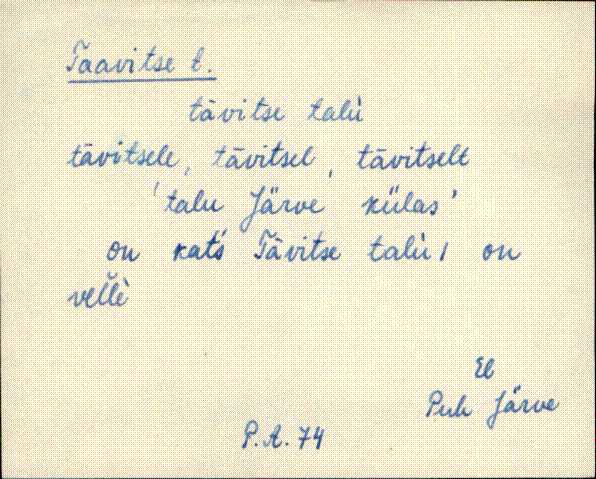 Taavitse t.
tāvitse talù
tāvitsele, tāvitsel, tāvitselt
'talu Järve külas'
on kat's Tāvitse talù, on
vel'l'ì
El
Puh Järve
P.A. 74